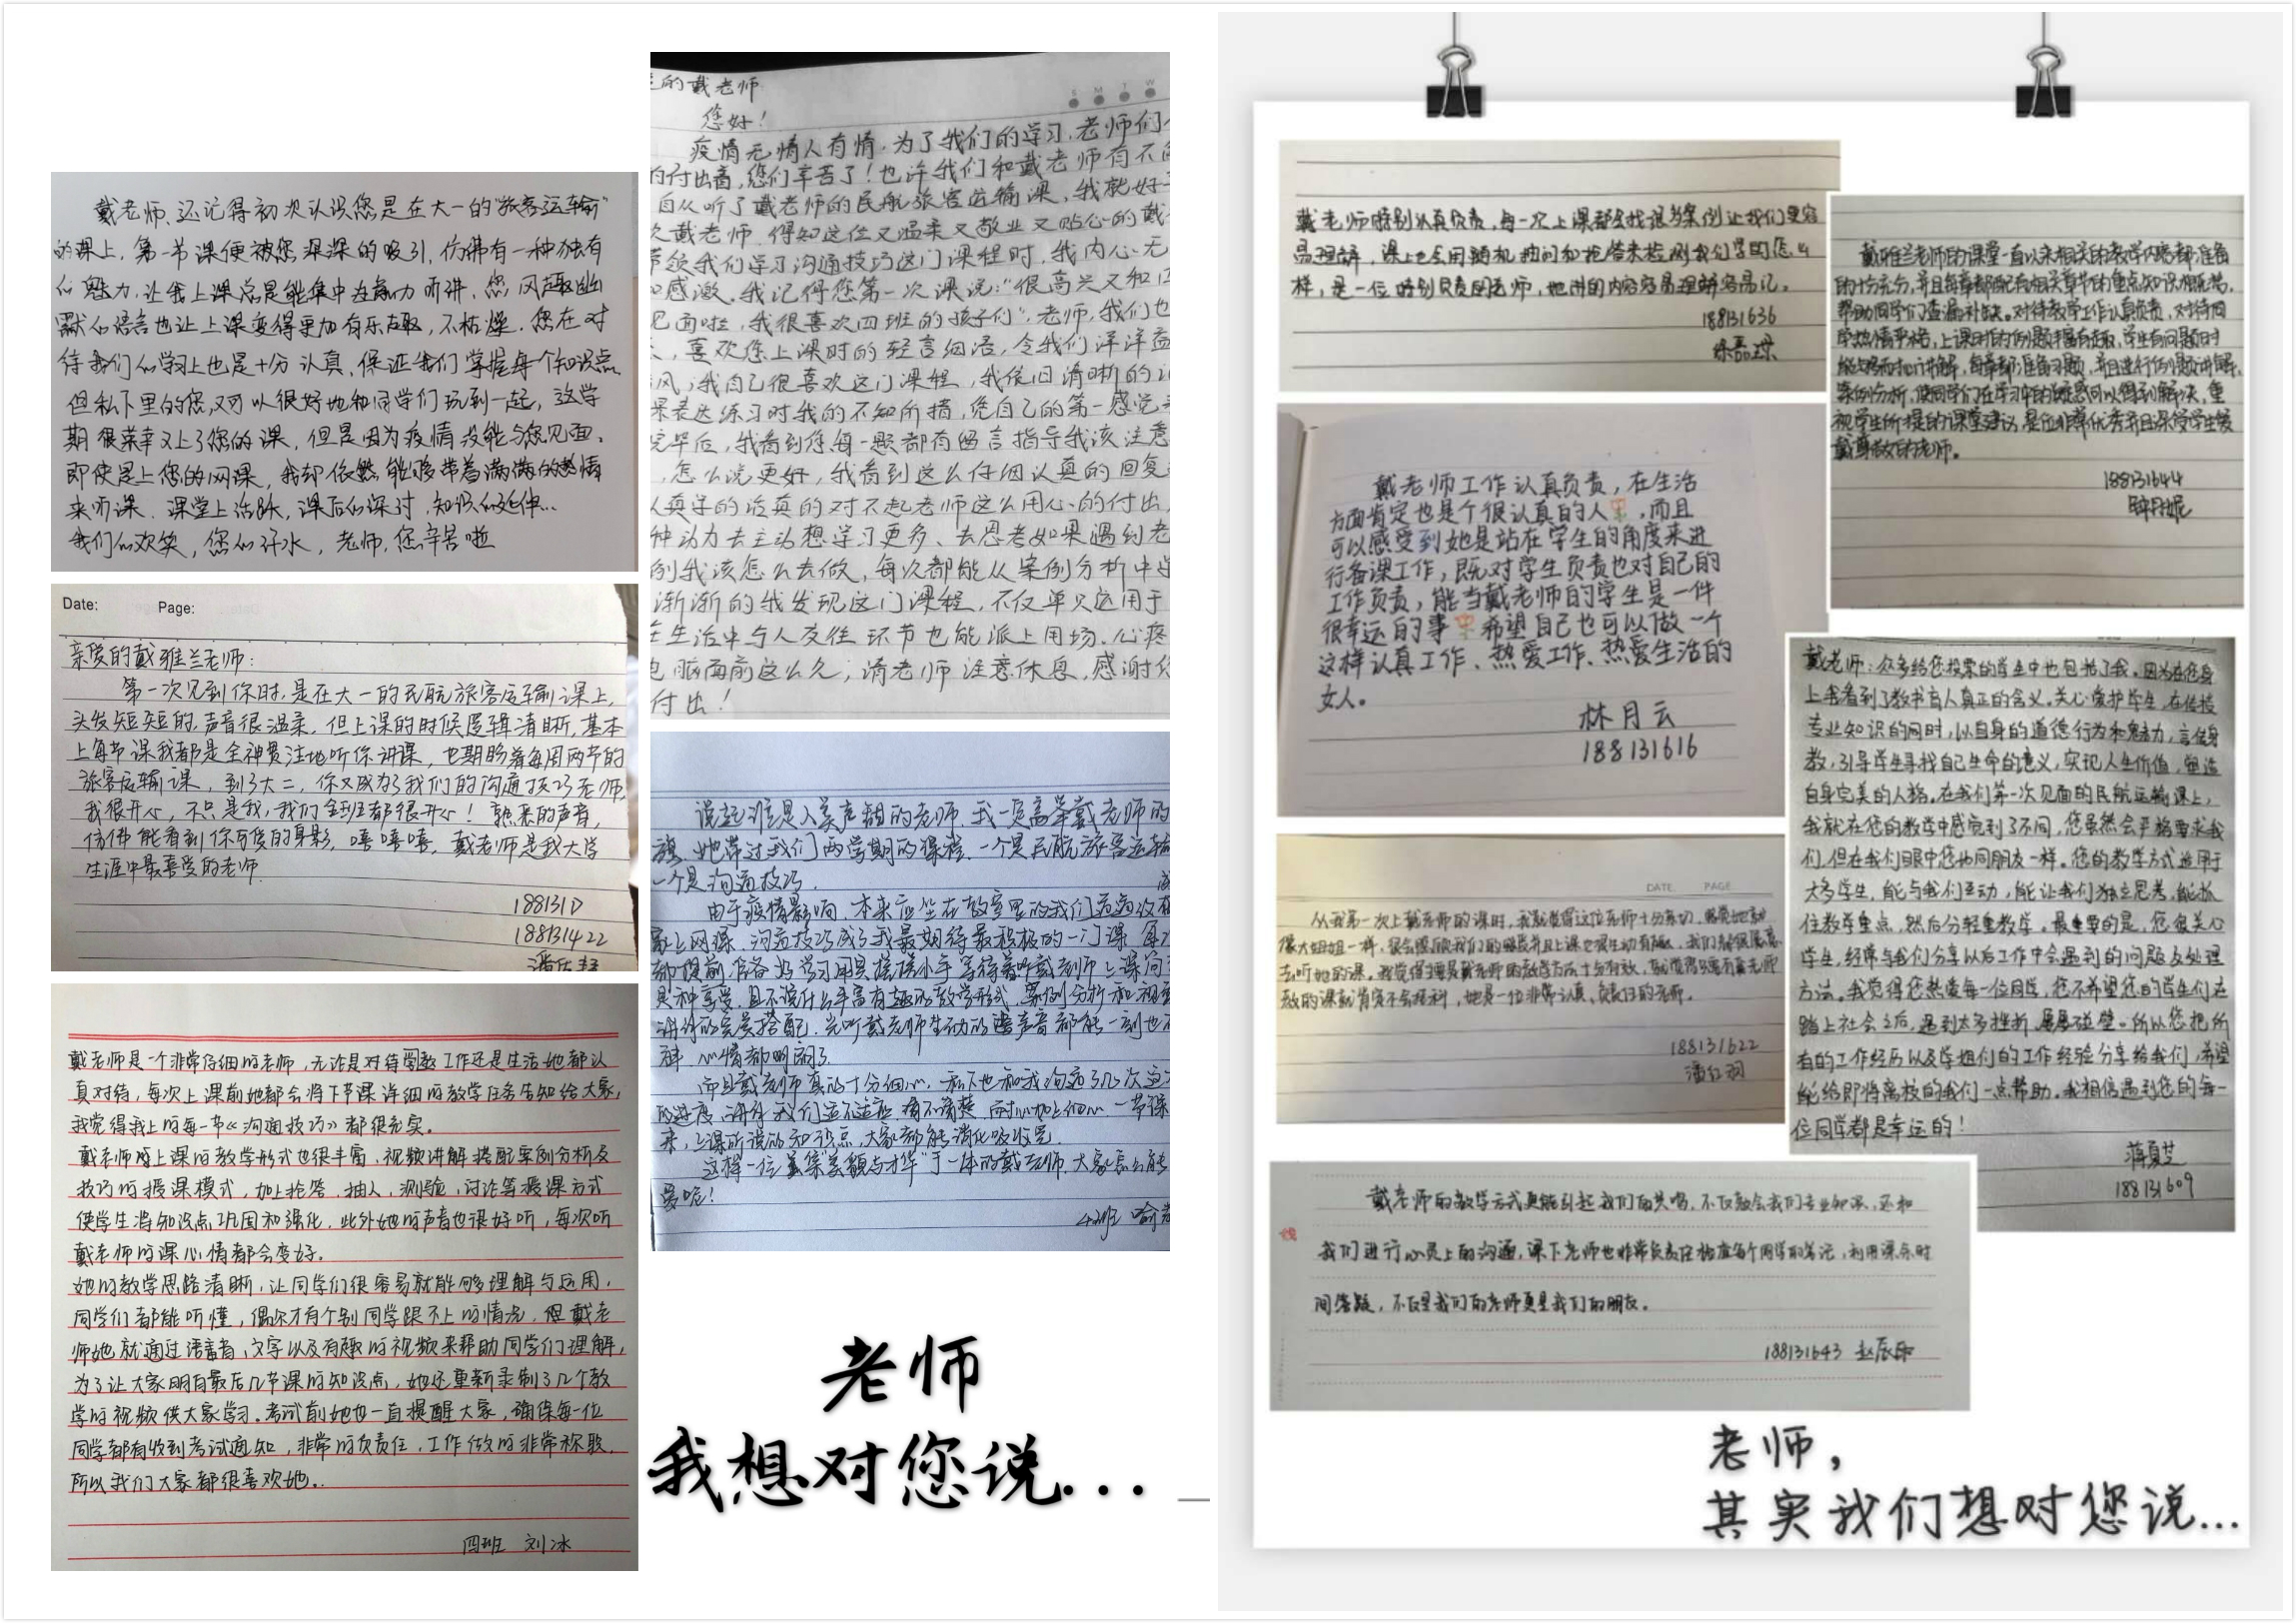 戴老师，还记得初次认识您是在大一的“旅客运输”
的课上，第一节课便被您深深的吸引，仿佛有一种独有
的魅力，让我上课总是能集中注意力听讲，您风趣幽
默的语言也让上课变得更加有乐趣，不枯燥。您在对
待我们的学习上也是十分认真，保证我们掌握每个知识点
但私下里的您，又可以很好地和同学们玩到一起，这学
期很荣幸又上了您的课，但是因为疫情没能与您见面，
即使是上您的网课，我却依然能够带着满满的热情
来听课。课堂上活跃，课后的探讨，知识的延伸...
我们的欢笑，您的汗水，老师，您辛苦啦
Date: Page:
亲爱的戴雅兰老师：
第一次见到你时，是在大一的民航旅客运输课上，
头发短短的，声音很温柔，但上课的时候逻辑清晰，基本
上每节课我都是全神贯注地听你讲课，也期盼着每周两节的
旅客运输课，到了大二，你又成为了我们的沟通技巧老师，
我很开心，不只是我，我们全班都很开心！熟悉的声音，
仿佛能看到你可爱的身影，嘻嘻嘻，戴老师是我大学
生涯中最喜爱的老师
188131D
188131422
戴老师是一个非常仔细的老师，无论是对待工作还是生活她都认
真对待，每次上课前她都会将下节课详细的教学任务告知给大家，
我觉得我上的每一节《沟通技巧》都很充实。
戴老师上课的教学形式也很丰富，视频讲解搭配案例分析及
技巧的授课模式，加上抢答，抽人，测验，讨论等授课方式
使学生将知识点巩固和强化，此外她的声音也很好听，每次听
戴老师的课心情都会变好。
她的教学思路清晰，让同学们很容易就能够理解与运用，
同学们都能听懂，偶尔才有个别同学跟不上的情况，但戴老
师她就通过语音，文字以及有趣的视频来帮助同学们理解，
为了让大家明白最后几节课的知识点，她还重新录制了几个教
学的视频供大家学习。考试前她也一直提醒大家，确保每一位
同学都有收到考试通知，非常的负责任，工作做的非常称职，
所以我们大家都很喜欢她。
四班 刘冰
的戴老师
您好！
疫情无情人有情，为了我们的学习，老师们
的付出着，您们辛苦了！也许我们和戴老师有不
自从听了戴老师的民航旅客运输课，我就好
戴老师，得知这位又温柔又敬业又贴心的戴
带领我们学习沟通技巧这门课程时，我内心无
感激。我记得您第一次课说：“很高兴又和
见面啦，我很喜欢四班的孩子们”，老师，我们也
，喜欢您上课时的轻言细语，令我们洋洋盈
风，我自己很喜欢这门课程，我依旧清晰的
表达练习时我的不知所措，凭自己的第一感觉
完毕后，我看到您每一题都有留言指导我该注意
，怎么说更好，我看到这么仔细认真的回复
认真学的话真的对不起老师这么用心的付出，
种动力去主动想学习更多、去思考如果遇到
例我该怎么去做，每次都能从案例分析中学
渐渐的我发现这门课程，不仅单只运用于
在生活中与人交往环节也能派上用场。心疼
电脑面前这么久，请老师注意休息，感谢
付出！
说起谁是人美声甜的老师，我一贯高举戴老师的
旗，她带过我们两学期的课程，一个是民航旅客运输
一个是沟通技巧。
由于疫情影响，本来应坐在教室里的我们
上网课，沟通技巧成了我最期待最积极的一门课，每次
都提前准备好学习用具搓搓小手等待着听戴老师上课
是种享受，且不说什么丰富有趣的教学形式，案例分析和视频
讲解的完美搭配，光听戴老师生动的声音都能一刻也
，心情都明朗了
而且戴老师真的十分细心，私下也和我沟通了几次
的进度，讲解我们适不适应，清不清楚，耐心加上细心，一节课
来，上课所说的知识点，大家都能消化吸收完
这样一位集“美貌与才华”于一体的戴老师，大家怎么能
爱呢！
四班 喻
老师
我想对您说...
戴老师特别认真负责，每一次上课都会找很多案例让我们更容
易理解，课上也会用随机抽问和抢答来检测我们学的怎么
样，是一位特别负责的老师，她讲的内容容易理解容易记。
188131636
戴雅兰老师的课堂一直以来相关的教学内容都准备
的十分充分，并且每章都配有相关章节的重点知识概括，
帮助同学们查漏补缺。对待教学工作认真负责，对待同
学热情严格，上课时的例题丰富有趣，学生有问题时
能够及时讲解，每章都准备习题，并且进行例题讲解，
案例分析，使同学们在学习中的疑惑可以得到解决，重
视学生所提的课堂建议，是位非常优秀并且深受学生爱
戴尊敬的老师。
188131644
戴老师工作认真负责，在生活
方面肯定也是个很认真的人，而且
可以感受到她是站在学生的角度来进
行备课工作，既对学生负责也对自己的
工作负责，能当戴老师的学生是一件
很幸运的事 希望自己也可以做一个
这样认真工作、热爱工作、热爱生活的
女人。
林月云
188131616
戴老师：众多给您投票的学生中也包括了我。因为在您身
上我看到了教书育人真正的含义。关心爱护学生，在传授
专业知识的同时，以自身的道德行为和魅力，言传身
教，引导学生寻找自己生命的意义，实现人生价值，塑造
自身完美的人格。在我们第一次见面的民航运输课上，
我就在您的教学中感觉到了不同，您虽然会严格要求我
们，但在我们眼中您如同朋友一样。您的教学方式适用于
大多学生，能与我们互动，能让我们独立思考，能抓
住教学重点，然后分轻重教学。最重要的是，您很关心
学生，经常与我们分享以后工作中会遇到的问题及处理
方法。我觉得您热爱每一位同学，您不希望您的学生们在
踏上社会之后，遇到太多挫折，屡屡碰壁。所以您把所
有的工作经历以及学姐们的工作经验分享给我们，希望
能给即将离校的我们一点帮助。我相信遇到您的每一
位同学都是幸运的！
蒋夏芝
188131609
DATE. PAGE
从我第一次上戴老师的课时，我就觉得这位老师十分亲切，感觉她就
像大姐姐一样，很会照顾我们的感受并且上课也很生动有趣，我们都很愿意
去听她的课。我觉得主要是戴老师的教学方式十分有效，我觉得只要有戴老师
教的课就肯定不会挂科，她是一位非常认真、负责任的老师。
188131622
潘红羽
戴老师的教学方式更能引起我们的共鸣，不仅教会我们专业知识，还和
我们进行心灵上的沟通，课下老师也非常负责任检查每个同学的笔记，利用课余时
间答疑，不仅是我们的老师更是我们的朋友。
188131643
老师，
其实我们想对您说...